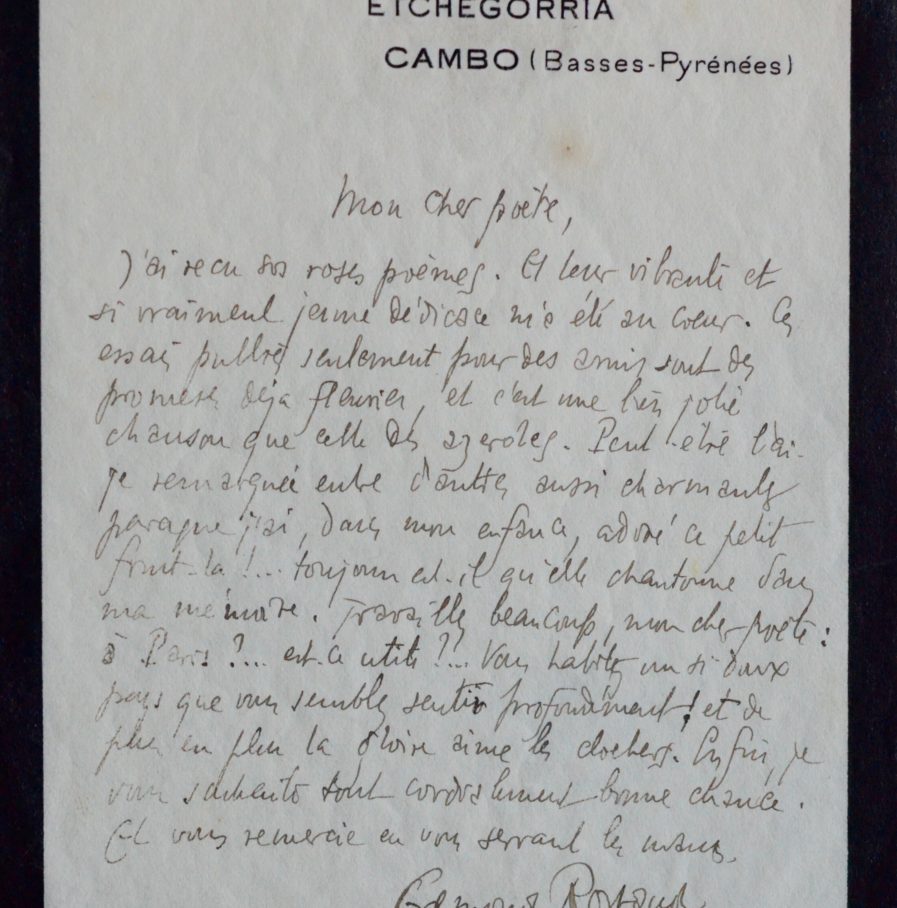 ETCHEGORRIA
CAMBO (Basses-Pyrénées)
Mon cher poète,
J'ai reçu vos roses poèmes. Et leur vibrante et
si vraiment jeune dédicace m'a été au cœur. Ces
essais publiés seulement pour des amis sont des
promesses déjà fleuries, et c'est une très jolie
chanson que celle des azeroles. Peut-être l'ai-
je remarquée entre d'autres aussi charmantes
parce que j'ai, dans mon enfance, adoré ce petit
fruit-là !... toujours est-il qu'elle chantonne dans
ma mémoire. Travaillez beaucoup, mon cher poète :
à Paris ?... est-ce utile ?... Vous habitez un si doux
pays que vous semblez sentir profondément ! et de
plus en plus la gloire aime les clochers. Enfin, je
vous souhaite tout cordialement bonne chance.
Et vous remercie en vous serrant les mains.
Edmond Rostand